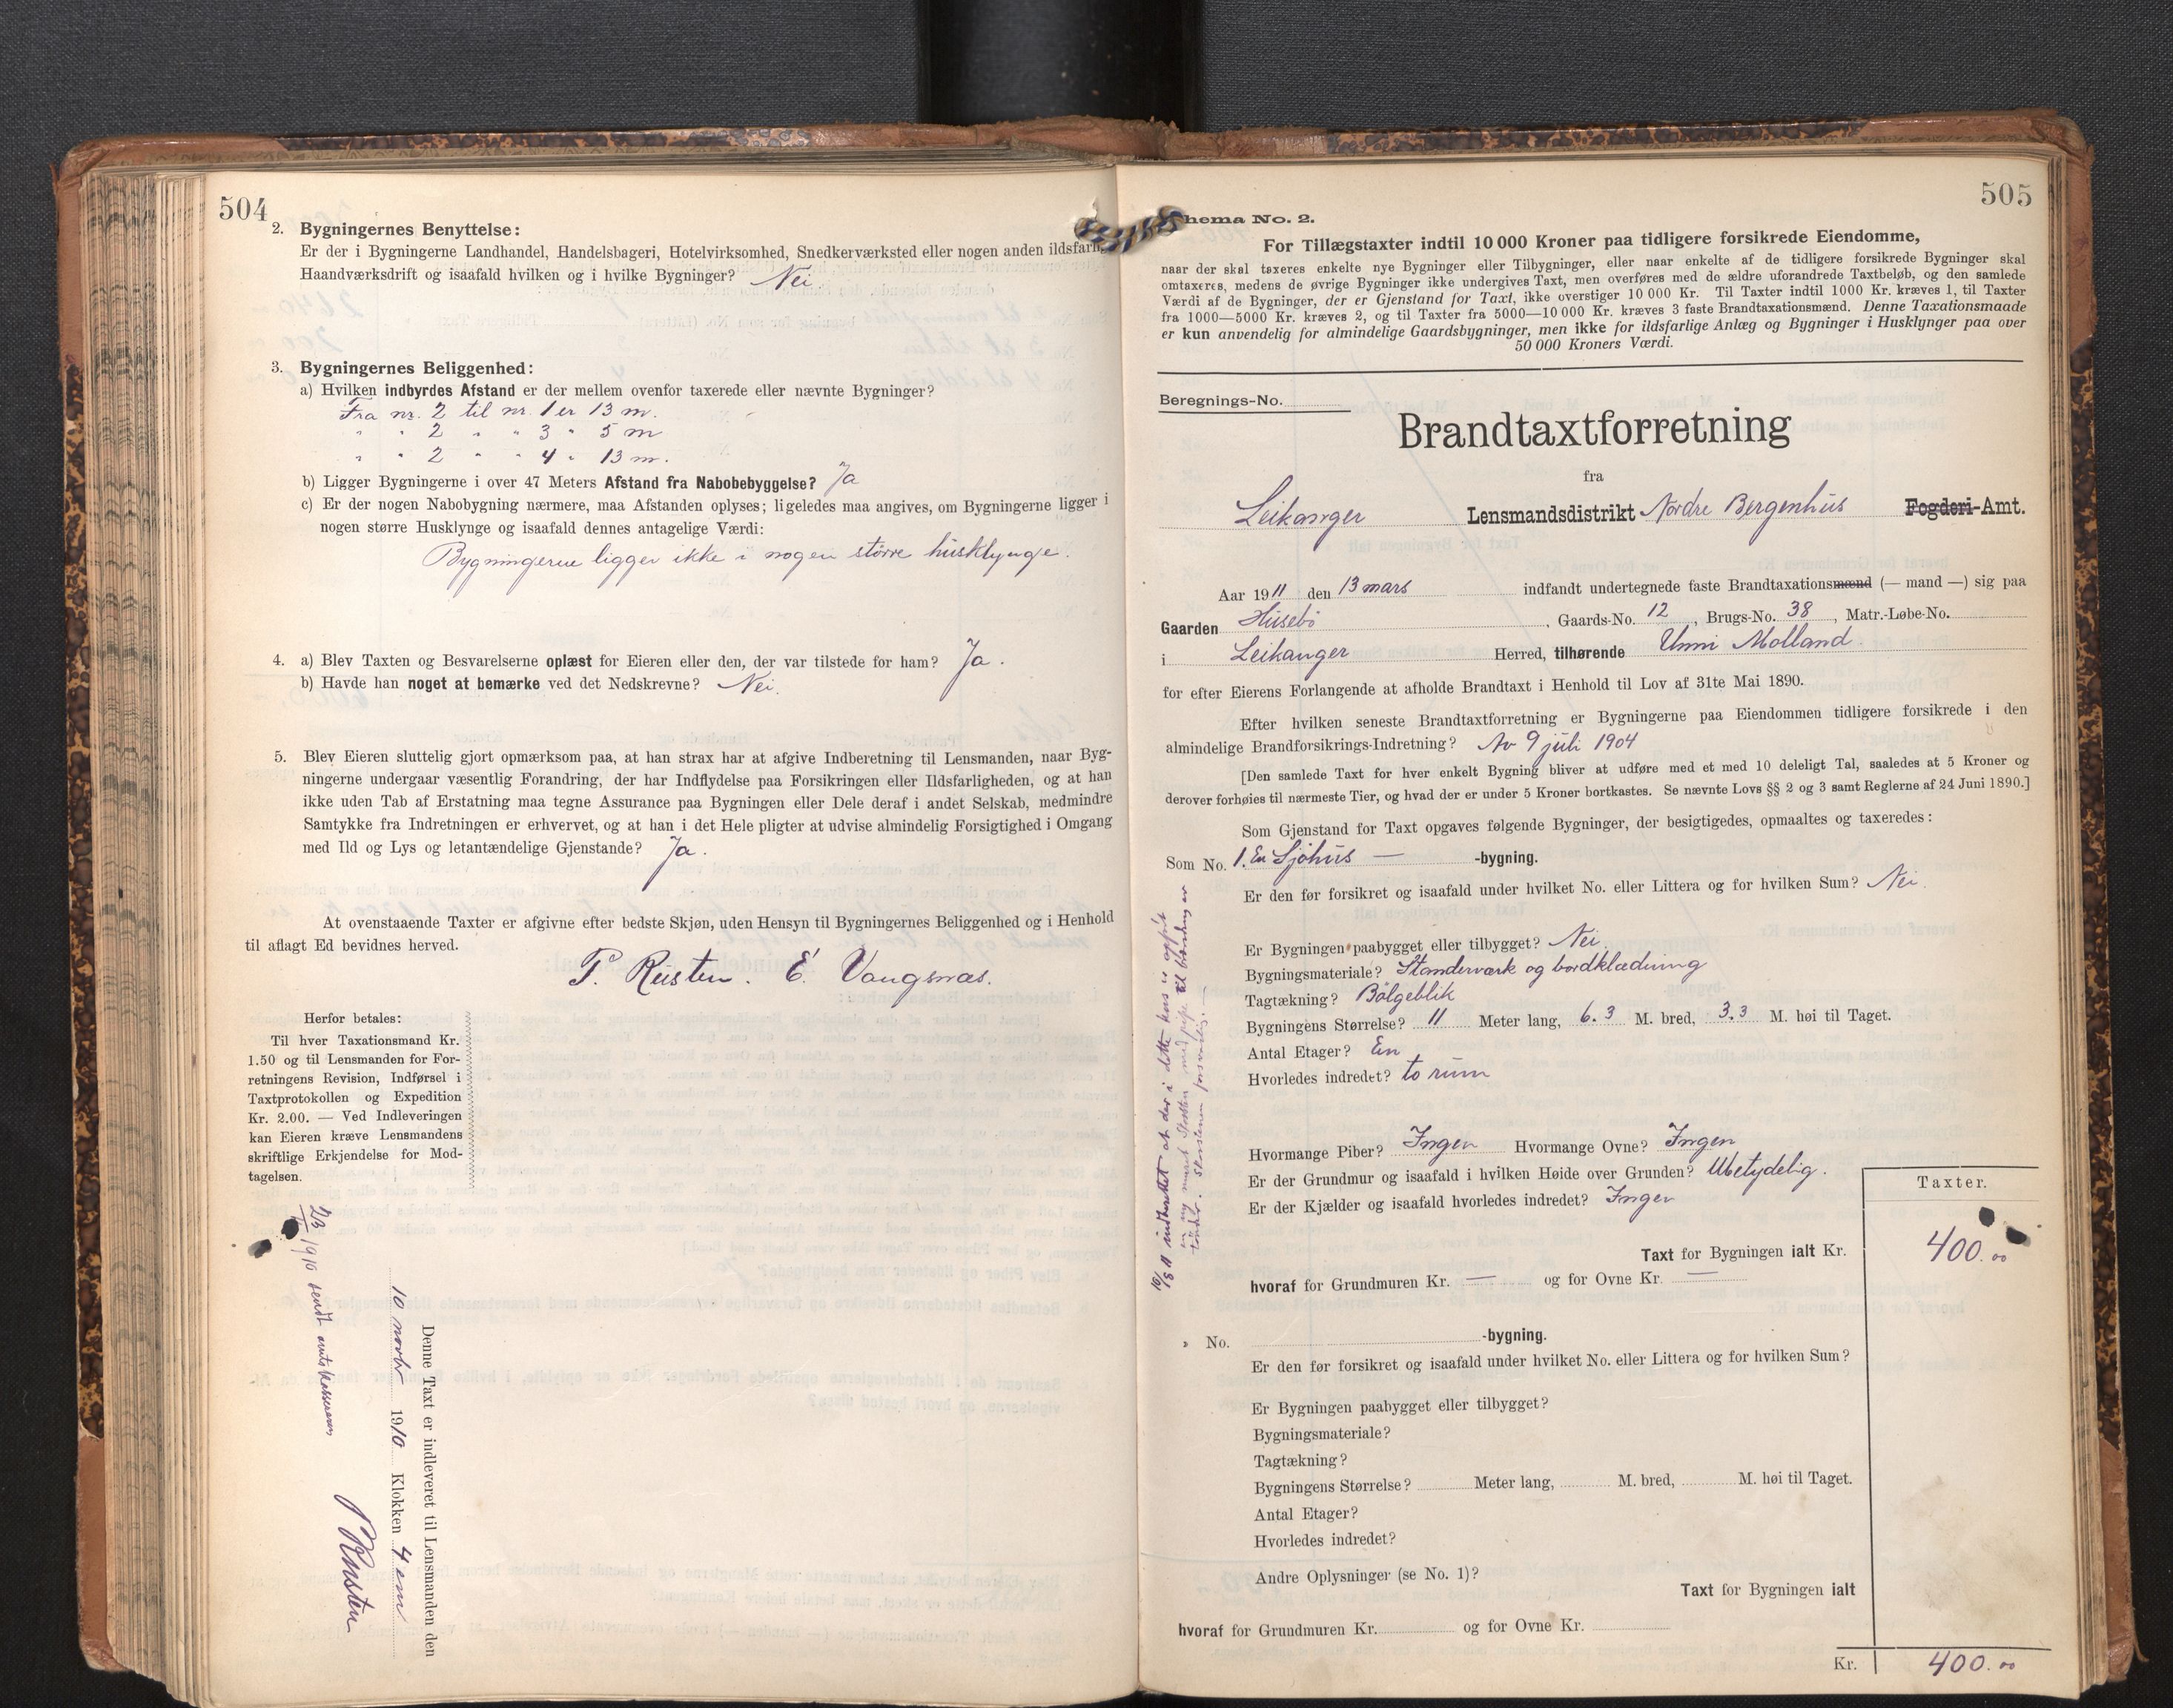 504
2. Bygningernes Benyttelse:
Er der i Bygningerne Landhandel, Handelsbageri, Hotelvirksomhed, Snedkerværksted eller nogen anden ildsfarlig
Haandværksdrift og isaafald hvilken og i hvilke Bygninger? Nei.
3. Bygningernes Beliggenhed:
a) Hvilken indbyrdes Afstand er der mellem ovenfor taxerede eller nævnte Bygninger?
Fra nr. 2 til nr. 1 er 13 m.
" " 2 " " 3 " 5 m
" " 2 " " 4 " 13 m.
b) Ligger Bygningerne i over 47 Meters Afstand fra Nabobebyggelse? Ja
c) Er der nogen Nabobygning nærmere, maa Afstanden oplyses; ligeledes maa angives, om Bygningerne ligger i
nogen større Husklynge og isaafald dennes antagelige Værdi:
Bygningerne ligger ikke i nogen större husklynge.
4. a) Blev Taxten og Besvarelserne oplæst for Eieren eller den, der var tilstede for ham? Ja.
b) Havde han noget at bemærke ved det Nedskrevne? Nei.
5. Blev Eieren sluttelig gjort opmærksom paa, at han strax har at afgive Indberetning til Lensmanden, naar Byg-
ningerne undergaar væsentlig Forandring, der har Indflydelse paa Forsikringen eller Ildsfarligheden, og at han
ikke uden Tab af Erstatning maa tegne Assurance paa Bygningen eller Dele deraf i andet Selskab, medmindre
Samtykke fra Indretningen er erhvervet, og at han i det Hele pligter at udvise almindelig Forsigtighed i Omgang
med Ild og Lys og letantændelige Gjenstande? Ja.
At ovenstaaende Taxter er afgivne efter bedste Skjøn, uden Hensyn til Bygningernes Beliggenhed og i Henhold
til aflagt Ed bevidnes herved.
P. Rusten. E. Vangsnæs.
Herfor betales:
Til hver Taxationsmand Kr.
1.50 og til Lensmanden for For-
retningens Revision, Indførsel i
Taxtprotokollen og Expedition
Kr. 2.00. — Ved Indleveringen
kan Eieren kræve Lensmandens
skriftlige Erkjendelse for Mod-
tagelsen.
Denne Taxt er indleveret til Lensmanden den
10 novbr 1910 Klokken 4 em
P Rusten
1910 sendt amtskassereren
505
hema No. 2.
For Tillægstaxter indtil 10 000 Kroner paa tidligere forsikrede Eiendomme,
naar der skal taxeres enkelte nye Bygninger eller Tilbygninger, eller naar enkelte af de tidligere forsikrede Bygninger skal
omtaxeres, medens de øvrige Bygninger ikke undergives Taxt, men overføres med de ældre uforandrede Taxtbeløb, og den samlede
Værdi af de Bygninger, der er Gjenstand for Taxt, ikke overstiger 10 000 Kr. Til Taxter indtil 1000 Kr. kræves 1, til Taxter
fra 1000—5000 Kr. kræves 2, og til Taxter fra 5000—10 000 Kr. kræves 3 faste Brandtaxationsmænd. Denne Taxationsmaade
er kun anvendelig for almindelige Gaardsbygninger, men ikke for ildsfarlige Anlæg og Bygninger i Husklynger paa over
50 000 Kroners Værdi.
Beregnings-No.
Brandtaxtforretning
fra
Leikanger Lensmandsdistrikt Nordre Bergenhus Fogderi-Amt.
Aar 1911 den 13 mars indfandt undertegnede faste Brandtaxationsmænd (— mand —) sig paa
Gaarden Husebö, Gaards-No. 12, Brugs-No. 38, Matr.-Løbe-No.
i Leikanger Herred, tilhørende Unni Molland.
for efter Eierens Forlangende at afholde Brandtaxt i Henhold til Lov af 31te Mai 1890.
Efter hvilken seneste Brandtaxtforretning er Bygningerne paa Eiendommen tidligere forsikrede i den
almindelige Brandforsikrings-Indretning? Av 9 juli 1904
[Den samlede Taxt for hver enkelt Bygning bliver at udføre med et med 10 deleligt Tal, saaledes at 5 Kroner og
derover forhøies til nærmeste Tier, og hvad der er under 5 Kroner bortkastes. Se nævnte Lovs §§ 2 og 3 samt Reglerne af 24 Juni 1890.]
Som Gjenstand for Taxt opgaves følgende Bygninger, der besigtigedes, opmaaltes og taxeredes:
Som No. 1. En Sjöhus — -bygning.
Er den før forsikret og isaafald under hvilket No. eller Littera og for hvilken Sum? Nei.
Er Bygningen paabygget eller tilbygget? Nei.
Bygningsmateriale? Standerværk og bordklædning
Tagtækning? Bölgeblik
Bygningens Størrelse? 11 Meter lang, 6.3 M. bred, 3.3 M. høi til Taget.
Antal Etager? En
Hvorledes indredet? to rum
Hvormange Piber? Ingen Hvormange Ovne? Ingen
Er der Grundmur og isaafald i hvilken Høide over Grunden? Ubetydelig.
Er der Kjælder og isaafald hvorledes indredet? Ingen
Taxter.
Taxt for Bygningen ialt Kr. 400.00
hvoraf for Grundmuren Kr. — og for Ovne Kr. —
" No. -bygning.
Er den før forsikret og isaafald under hvilket No. eller Littera og for hvilken Sum?
Er Bygningen paabygget eller tilbygget?
Bygningsmateriale?
Tagtækning?
Bygningens Størrelse? Meter lang, M. bred, M. høi til Taget.
Antal Etager?
Hvorledes indredet?
Andre Oplysninger (se No. 1)?
Taxt for Bygningen ialt
hvoraf for Grundmuren Kr. og for Ovne Kr.
Kr. 400.00
indberettet at der i dette hus er opsat
en ny muret Skorsten med pipe til
Skorstenen forsvarlig.